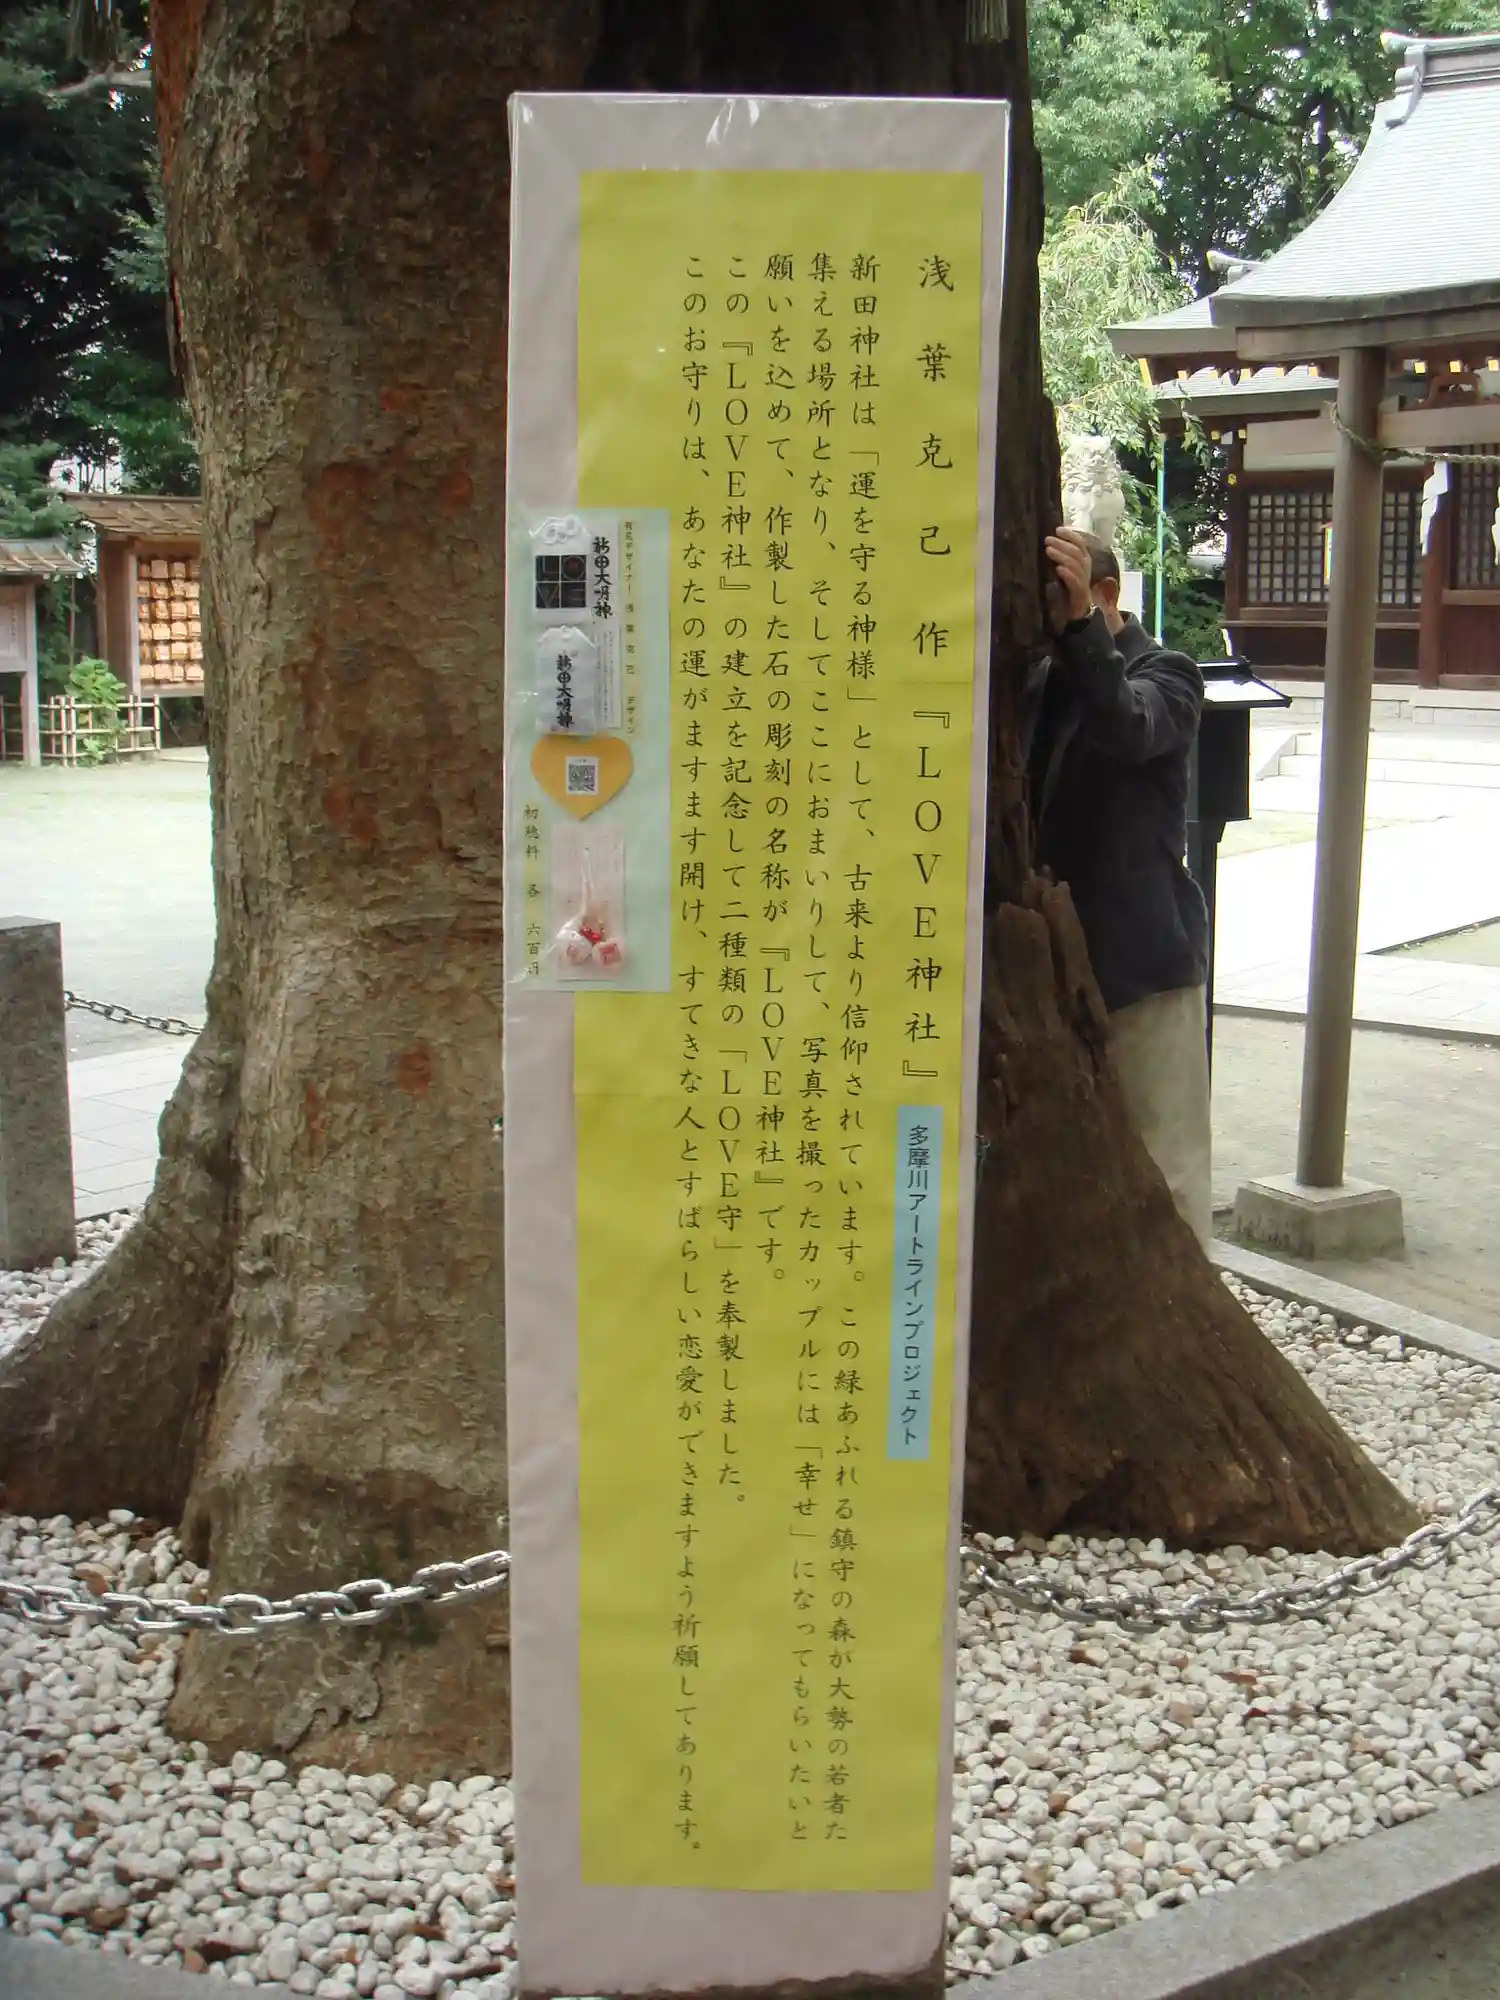 浅葉克己作『LOVE神社』
多摩川アートラインプロジェクト
新田神社は「運を守る神様」として、古来より信仰されています。この緑あふれる鎮守の森が大勢の若者た
集える場所となり、そしてここにおまいりして、写真を撮ったカップルには「幸せ」になってもらいたいと
願いを込めて、作製した石の彫刻の名称が『LOVE神社』です。
この『LOVE神社』の建立を記念して二種類の「LOVE守」を奉製しました。
このお守りは、あなたの運がますます開け、すてきな人とすばらしい恋愛ができますよう祈願してあります。
有名デザイナー 浅葉克己 デザイン
新田大明神
LOVE
新田大明神
初穂料 各 六百円